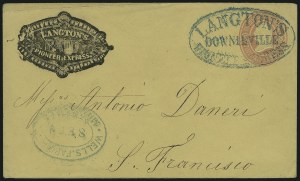 LANGTON'S
PIONEER EXPRESS
LANGTON'S
DOWNIEVILLE
Messrs Antonio Daneri
WELLS, FARGO
S. Francisco